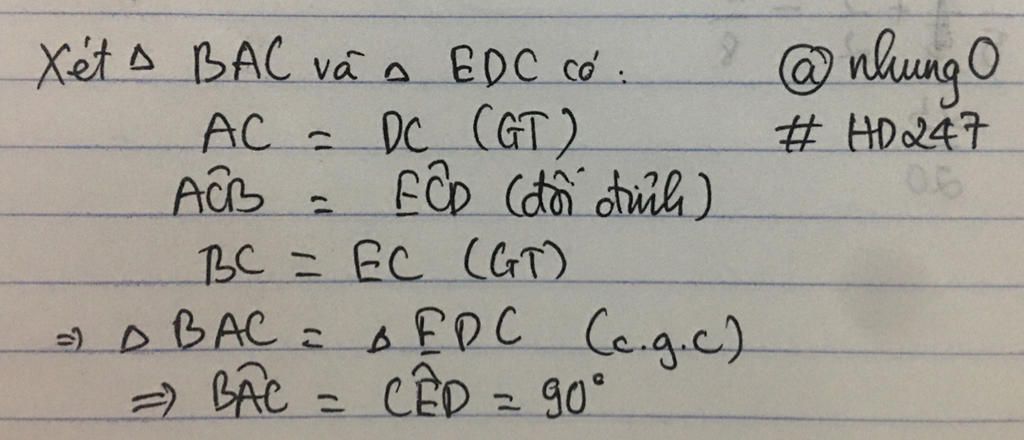 Xét Δ BAC và Δ EDC có: @nhung0
AC = DC (GT) # HD247
AĈB = EĈD (đối đỉnh)
BC = EC (GT)
⇒ Δ BAC = Δ EDC (c.g.c)
⇒ BÂC = CÊD = 90°